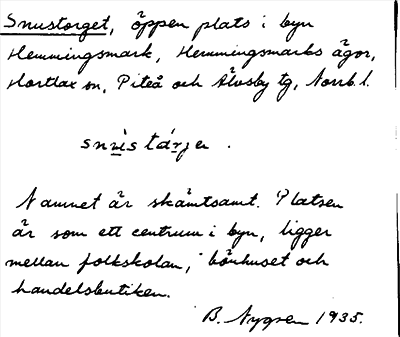 Snustorget, öppen plats i byn
Hemmingsmark, Hemmingsmarks ägor,
Hortlax sn, Piteå och Älvsby tg, Norrb. l.
snùstárjer.
Namnet är skämtsamt. Platsen
är som ett centrum i byn, ligger
mellan folkskolan, bönhuset och
handelsbutiken.
B. Nygren 1935.